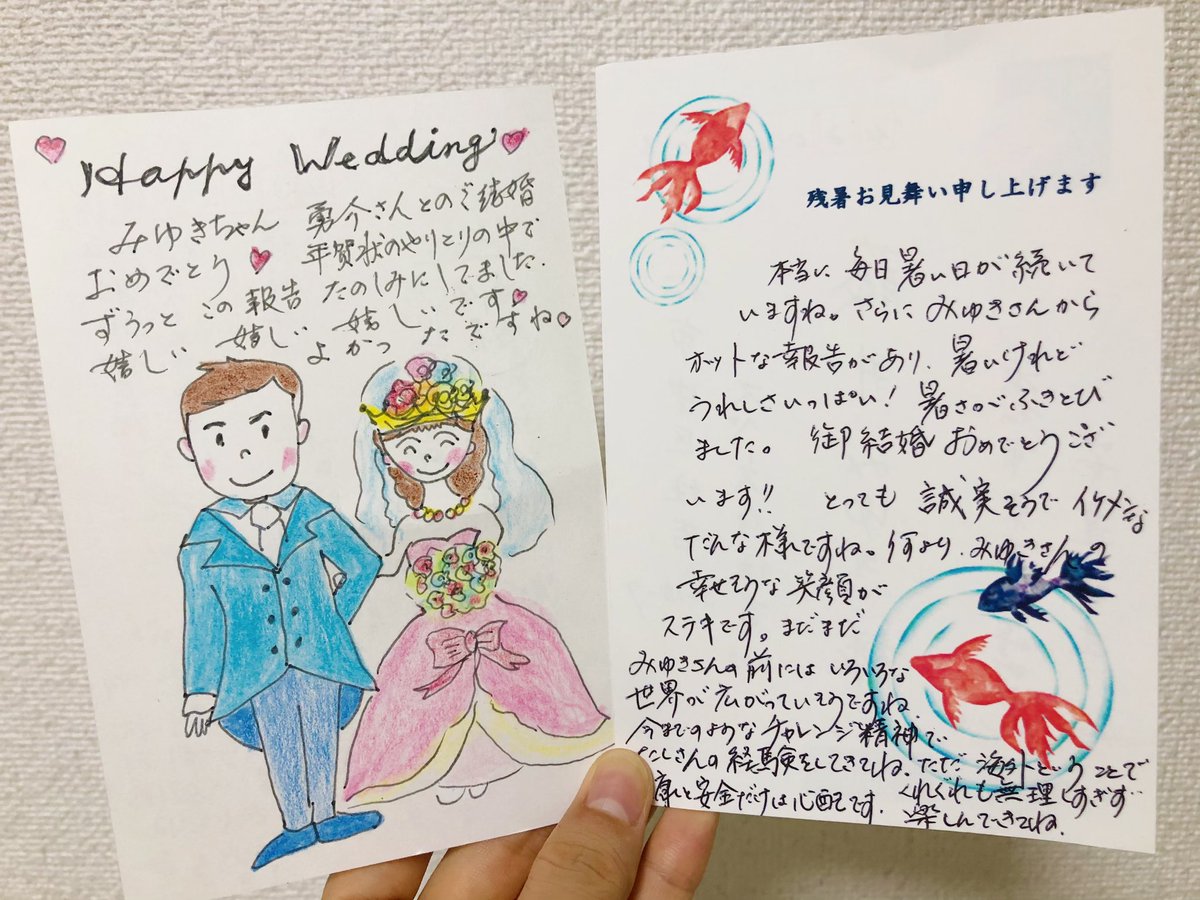 Happy Wedding
みゆきちゃん 勇介さんとのご結婚
おめでとう 年賀状のやりとりの中で
ずうっと この報告 たのしみにしてました.
嬉しい 嬉しい 嬉しいです
よかったですね
残暑お見舞い申し上げます
本当に毎日暑い日が続いて
いますね。さらにみゆきさんから
ホットな報告があり、暑いけれど
うれしさいっぱい!暑さがふきとび
ました。御結婚おめでとうござ
います!! とっても誠実そうでイケメンな
だんな様ですね。何より、みゆきさんの
幸せそうな笑顔が
ステキです。まだまだ
みゆきさんの前にはいろいろな
世界が広がっていそうですね
今までのようなチャレンジ精神で
たくさんの経験をしてきてね、ただ海外ということで
康と安全だけは心配です、くれぐれも無理しすぎず
楽しんできてね、